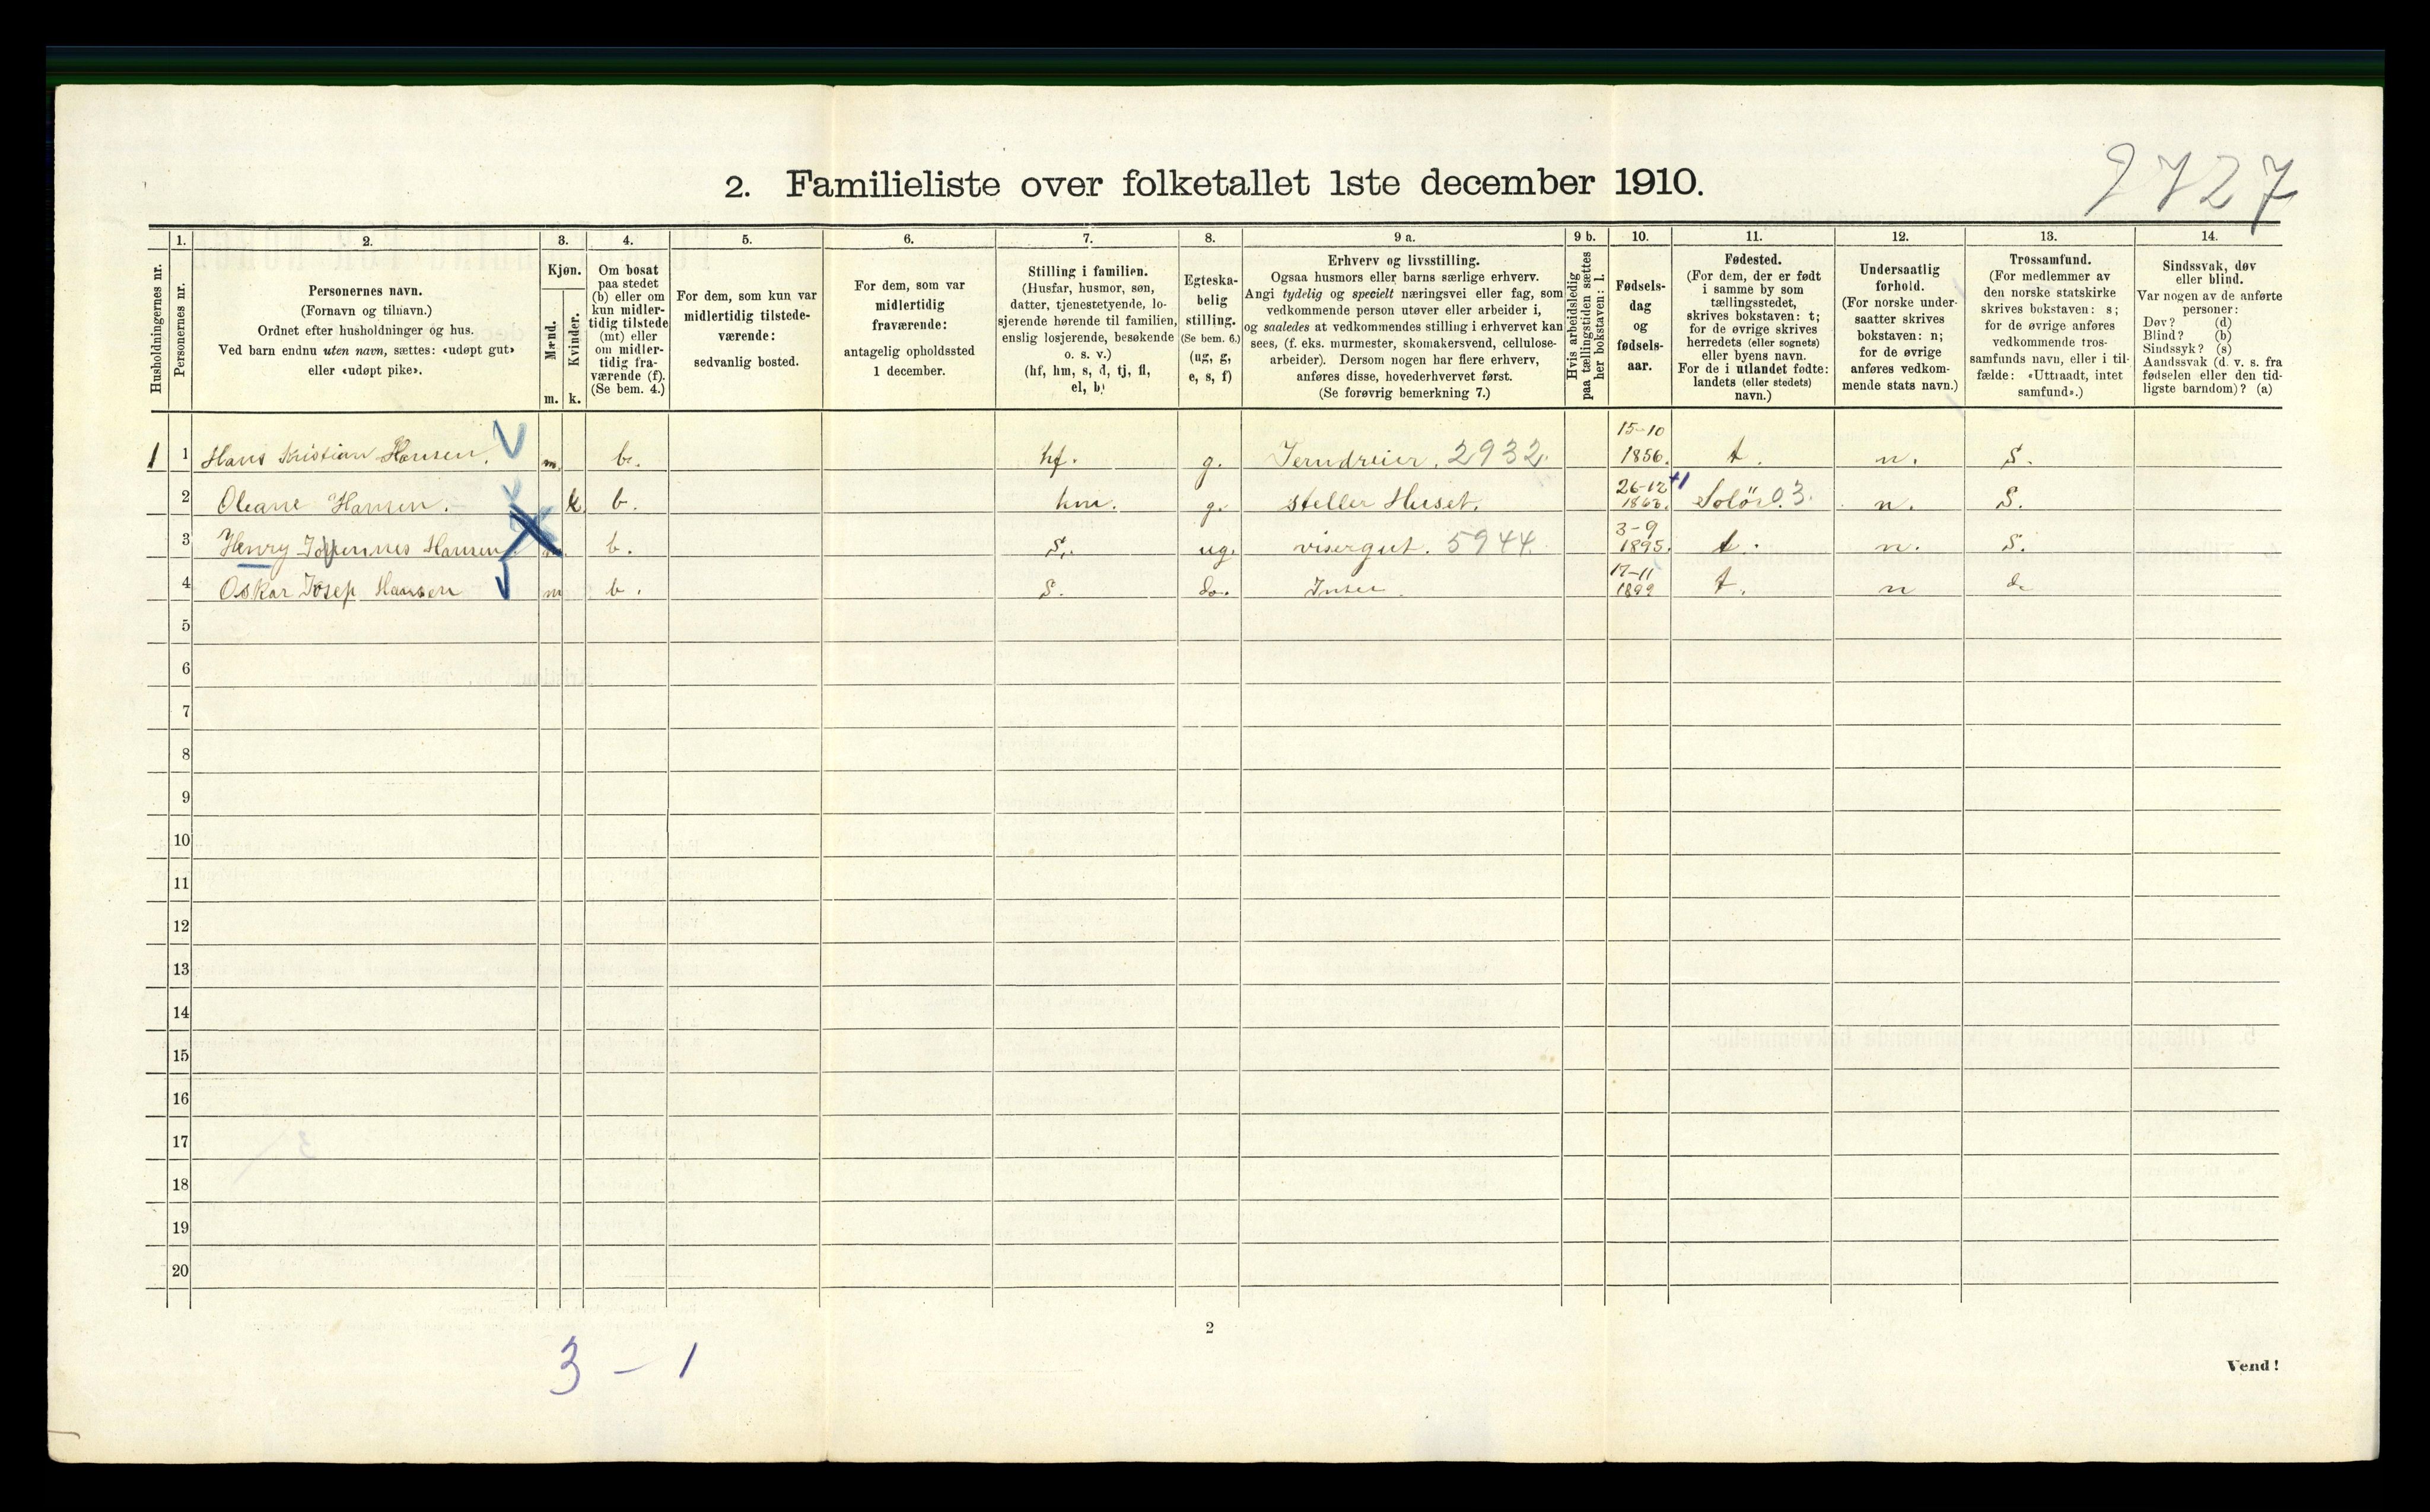 2727
2. Familieliste over folketallet 1ste december 1910.
Husholdningernes nr.
1.
Personernes nr.
2.
Personernes navn.
(Fornavn og tilnavn.)
Ordnet efter husholdninger og hus.
Ved barn endnu uten navn, sættes: «udøpt gut»
eller «udøpt pike».
3.
Kjøn.
Mænd.
Kvinder.
m.
k.
4.
Om bosat
paa stedet
(b) eller om
kun midler-
tidig tilstede
(mt) eller
om midler-
tidig fra-
værende (f).
(Se bem. 4.)
5.
For dem, som kun var
midlertidig tilstede-
værende:
sedvanlig bosted.
6.
For dem, som var
midlertidig
fraværende:
antagelig opholdssted
1 december.
7.
Stilling i familien.
(Husfar, husmor, søn,
datter, tjenestetyende, lo-
sjerende hørende til familien,
enslig losjerende, besøkende
o. s. v.)
(hf, hm, s, d, tj, fl,
el, b)
8.
Egteska-
belig
stilling.
(Se bem. 6.)
(ug, g,
e, s, f)
9 a.
Erhverv og livsstilling.
Ogsaa husmors eller barns særlige erhverv.
Angi tydelig og specielt næringsvei eller fag, som
vedkommende person utøver eller arbeider i,
og saaledes at vedkommendes stilling i erhvervet kan
sees, (f. eks. murmester, skomakersvend, cellulose-
arbeider). Dersom nogen har flere erhverv,
anføres disse, hovederhvervet først.
(Se forøvrig bemerkning 7.)
9 b.
Hvis arbeidsledig
paa tællingstiden sættes
her bokstaven: l.
10.
Fødsels-
dag
og
fødsels-
aar.
11.
Fødested.
(For dem, der er født
i samme by som
tællingsstedet,
skrives bokstaven: t;
for de øvrige skrives
herredets (eller sognets)
eller byens navn.
For de i utlandet fødte:
landets (eller stedets)
navn.)
12.
Undersaatlig
forhold.
(For norske under-
saatter skrives
bokstaven: n;
for de øvrige
anføres vedkom-
mende stats navn.)
13.
Trossamfund.
(For medlemmer av
den norske statskirke
skrives bokstaven: s;
for de øvrige anføres
vedkommende tros-
samfunds navn, eller i til-
fælde: «Uttraadt, intet
samfund».)
14.
Sindssvak, døv
eller blind.
Var nogen av de anførte
personer:
Døv? (d)
Blind? (b)
Sindssyk? (s)
Aandssvak (d. v. s. fra
fødselen eller den tid-
ligste barndom)? (a)
1 1 Hans Kristian Hansen. m. b. hf. g. Jerndreier. 2932. 15-10 1856. t. n. S.
2 Oleane Hansen. k. b. hm. g. steller Huset. 26-12 1863. +1 Solör. 03. n. S.
3 Henry Johennes Hansen. m. b. S. ug. visergut. 5944. 3-9 1895. t. n. S.
4 Oskar Josep Hansen m b. S. do. 17-11 1899 t. n do
5
6
7
8
9
10
11
12
13
14
15
16
17
18
19
20
2
3 - 1
Vend!